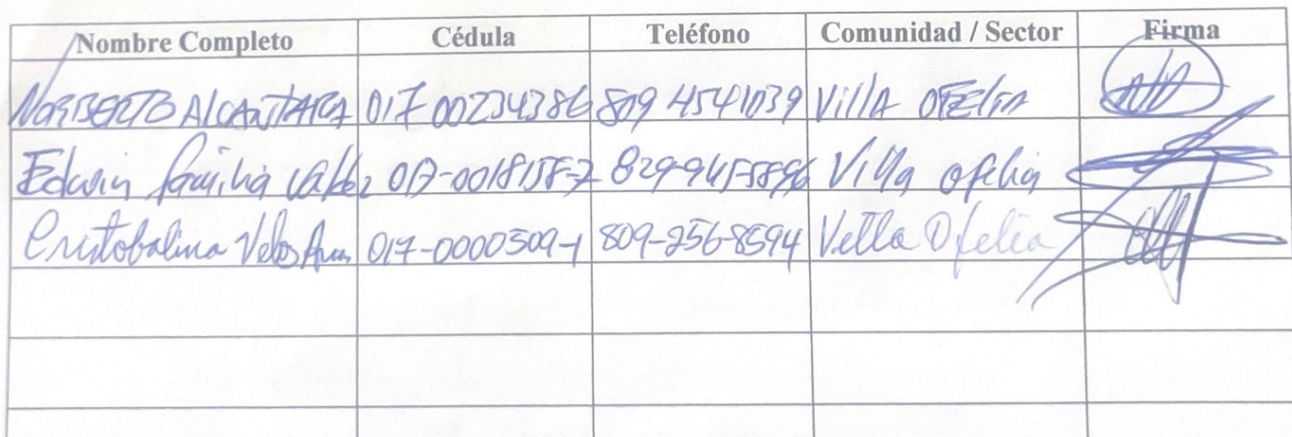 Nombre Completo Cédula Teléfono Comunidad / Sector Firma
NORBERTO ALCANTARA 017 00234386 809 4541039 VillA OFEliA
Edwin familia 017-0018158-7 829-945-5896 Villa ofelia
Cristobalina 017-0000509-1 809-256-8594 Vella Ofelia